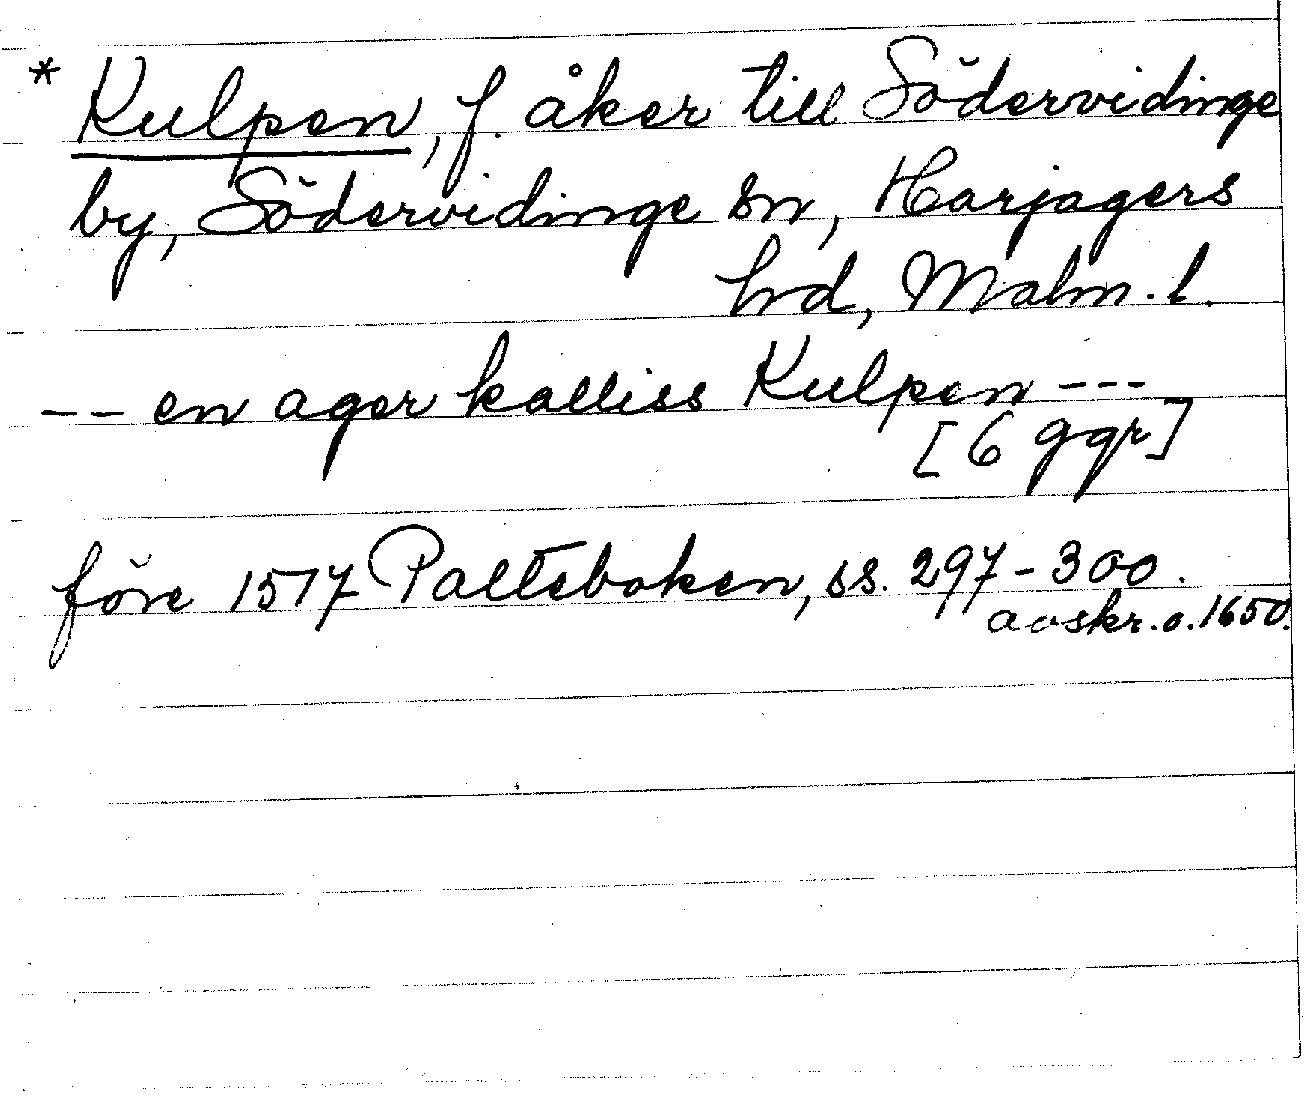 * Kulpen, f. åker till Södervidinge
by, Södervidinge sn, Harjagers
hrd, Malm. l.
-- en ager kalliss Kulpen ---
[6 ggr]
före 1517 Palteboken, ss. 297-300.
avskr. o. 1650.